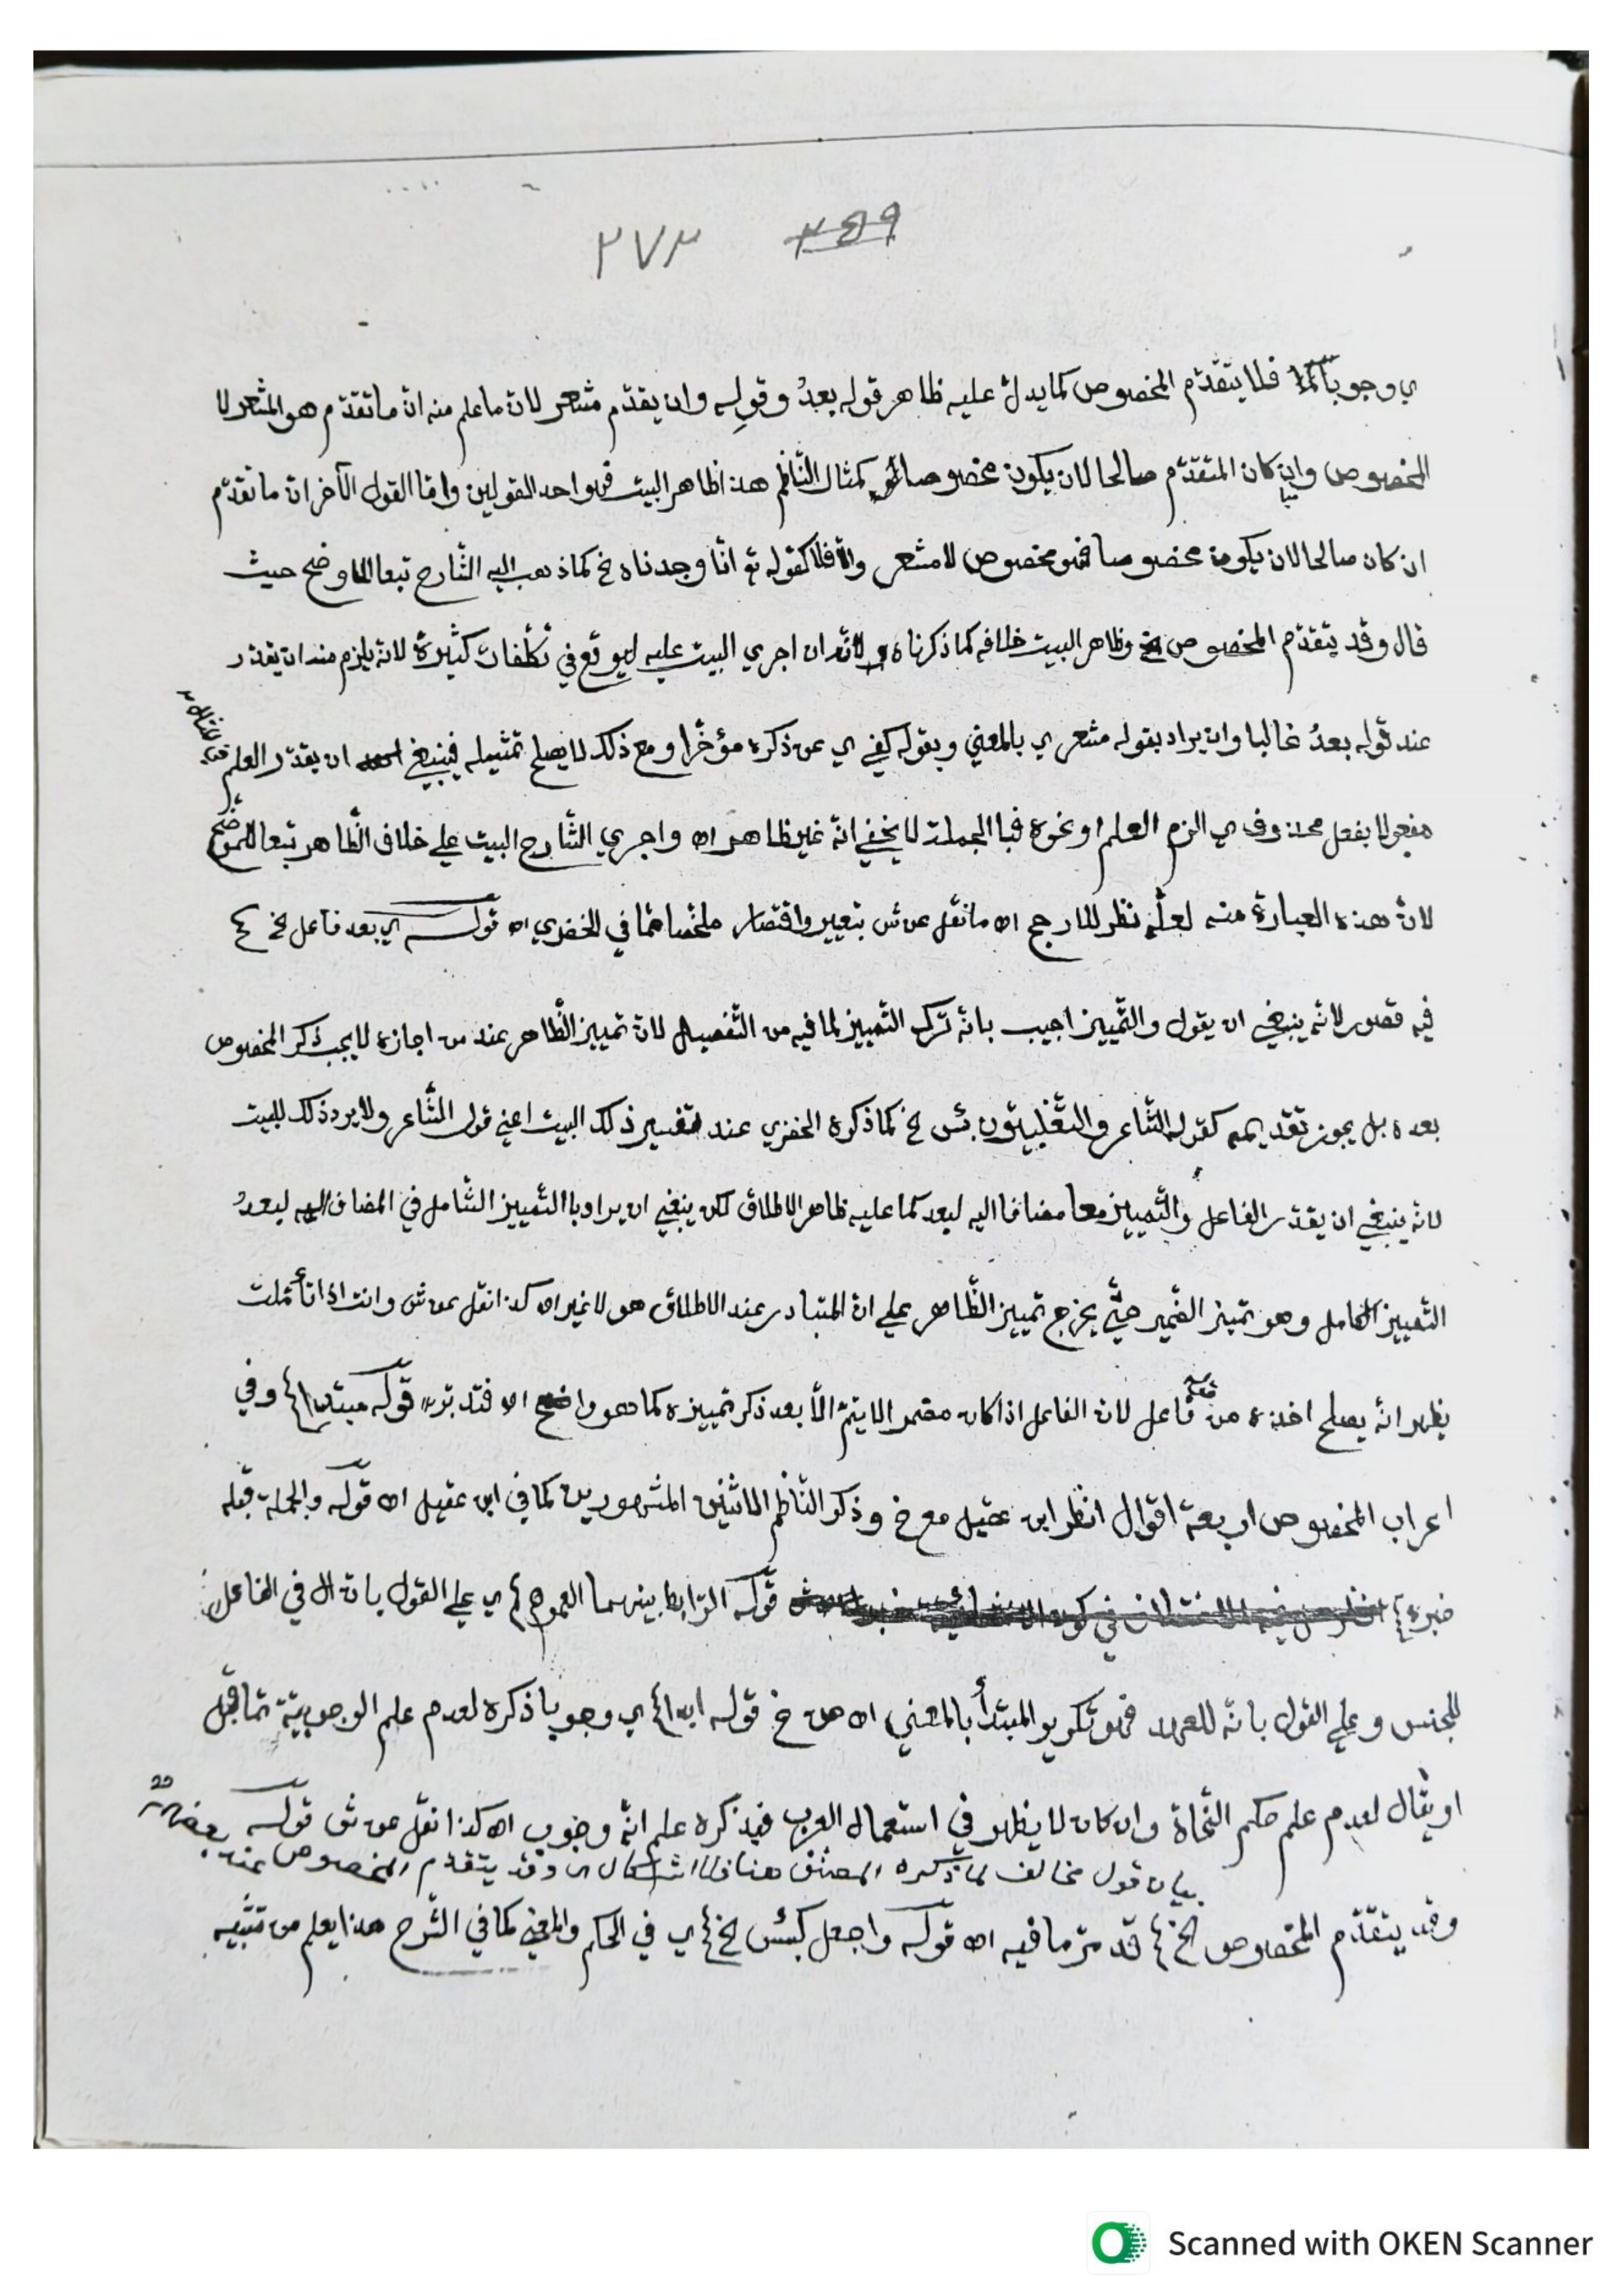 ٢٧٣ ٣٥٩
ي وجوبا فلا يتقدّم المخصوص كما يدلّ عليه ظاهر قوله بعدُ وقولِه وان يقدّم مشعر لانّ ما علم منه انّ ما تقدّم هو المشعر لا
المخصوص وان كان المتقدّم صالحا لان يكون مخصوصا كمثال النّاظم هذا ظاهر البيت فهو احد القولين وامّا القول الآخر انّ ما تقدّم
ان كان صالحا لان يكون مخصوصا فهو مخصوص لا مشعر والّا فلا كقوله تع انّا وجدناه خ كما ذهب اليه الشّارح تبعا للاوضح حيث
قال وقد يتقدّم المخصوص وظاهر البيت خلافه كما ذكرناه لانّه ان اجري البيت عليه ليوقع في تكلّفات كثيرة لانه يلزم منه ان يقدّر
عند قوله بعدُ غالبا وان يراد بقوله مشعر ي بالمعني وبقوله كفي ي عن ذكره مؤخّرا ومع ذلك لا يصلح تمثيله فينبغي ان يقدّر العلم
مفعولا بفعل محذوف ي الزم العلم او نحوه فبالجملة لا يخفي انّه غير ظاهر اه واجري الشّارح البيت علي خلاف الظّاهر تبعا للموضّح
لانّ هذه العبارة منه لعلّه نظر للارجح اه ما نقل عن ش بتغيير واقتصار ملخّصا ممّا في الخضري اه قولـه ي بعد فاعل خ ٤
فيه قصور لانّه ينبغي ان يقول والتّمييز اجيب بانّه ترك التمييز لما فيه من التّفصيل لانّ تمييز الظّاهر عند من اجازه لا يجب ذكر المخصوص
بعده بل يجوز تقديمه كقول الشّاعر والتّغلبيّون بئس خ كما ذكره الخضري عند تفسير ذلك البيت اعني قول الشّاعر ولا يرد ذلك للبيت
لانّه ينبغي ان يقدّر الفاعل والتّمييز معا مضافا اليه لبعد كما عليه ظاهر الاطلاق لكن ينبغي ان يراد باالتّمييز الشّامل في المضاف اليه لبعدُ
التّمييز الكامل وهو تمييز الضّمير حتّي يخرج تمييز الظّاهر علي انّ المتبادر عند الاطلاق هو لا غير اه كذا نقل عن ش وانت اذا تأمّلت
يظهر انّه يصلح اخذه من فاعل لانّ الفاعل اذا كان مضمرا لا يتمّ الّا بعد ذكر تمييزه كما هو واضح اه فتدبّر قولـه مبتدا ٤ وفي
اعراب المخصوص اربعة اقوال انظر ابن عقيل مع خ وذكر النّاظم الاثنين المشهورين كما في ابن عقيل اه قولـه والجملة قبله
خبره ٤ قولـه الرّابط بينهما العموم ٤ ي علي القول بانّ ال في الفاعل
للجنس وعلي القول بانّه للعهد فهو تكرير المبتدأ بالمعني اه من خ قوله ابدا ٤ ي وجوبا ذكره لعدم علم الوجوبيّة ممّا قبل
او يقال لعدم علم حكم النّحاة وان كان لا يظهر في استعمال العرب فبذكره علم انّه وجوب اه كذا نقل عن ش قولـه
بيان قول مخالف لما ذكره المصنّف هنا فلا اشكال اي وقد يتقدّم المخصوص عند بعضهم
وقد يتقدّم المخصوص الخ ٤ قد مرّ ما فيه اه قولـه واجعل كبئس خ ٤ ي في الحكم والمعني كما في الشّرح هذا يعلم من تنبيه
Scanned with OKEN Scanner